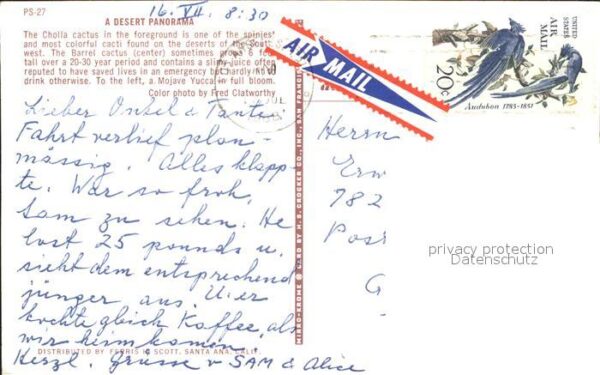 PS-27
A DESERT PANORAMA
The Cholla cactus in the foreground is one of the spiniest
and most colorful cacti found on the deserts of the South-
west. The Barrel cactus (center) sometimes grows 6 feet
tall over a 20-30 year period and contains a slimy juice often
reputed to have saved lives in an emergency but hardly
drink otherwise. To the left, a Mojave Yucca in full bloom.
Color photo by Fred Clatworthy
16. VII. 8:30
Lieber Onkel & Tante:
Fahrt verlief plan-
mässig. Alles klapp-
te. War so froh,
Sam zu sehen. He
lost 25 pounds u.
sieht dem entsprechend
jünger aus. U. er
kochte gleich Kaffee, als
wir heim kamen.
Herzl. Grüsse v SAM & Alice
DISTRIBUTED BY FERRIS H. SCOTT, SANTA ANA, CALIF.
MIRRO-KROME ® CARD BY H. S. CROCKER CO., INC., SAN FRANCISCO
AIR MAIL
UNITED STATES
AIR MAIL
20c
Audubon 1785-1851
Herrn
Erw
782
Post
G
privacy protection
Datenschutz